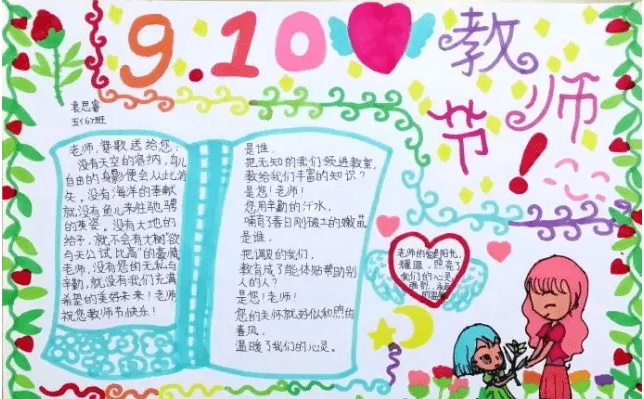 9.10
教师节!
袁思睿
五(6)班
老师,赞歌送给您:
没有天空的容纳,鸟儿
自由的身影便会从此消
失。没有海洋的奉献
就没有鱼儿来驻驰骋
的英姿。没有大地的
给予,就不会有大树"欲
与天公试比高"的豪情
老师,没有您的无私与
辛勤,就没有我们充满
希望的美好未来!老师
祝您教师节快乐!
是谁,
把无知的我们领进教室,
教给我们丰富的知识?
是您!老师!
您用辛勤的汗水,
哺育了春日刚破土的嫩苗
是谁,
把调皮的我们,
教育成了能体贴帮助别
人的人?
是您!老师!
您的关怀就好似和煦的
春风,
温暖了我们的心灵。
老师的爱是阳光,
照亮了
我们的心灵